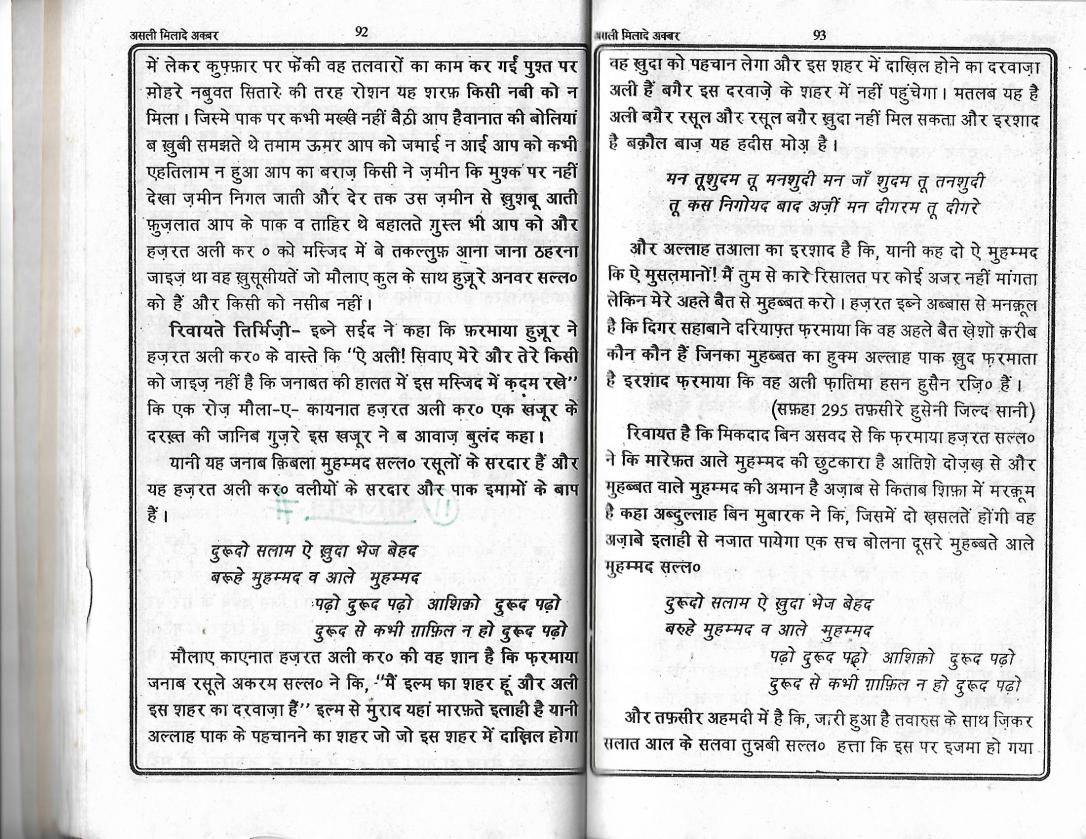 असली मिलादे अक्बर 92
में लेकर कुफ्फ़ार पर फेंकी वह तलवारों का काम कर गईं पुश्त पर
मोहरे नबुवत सितारे की तरह रोशन यह शरफ़ किसी नबी को न
मिला। जिस्मे पाक पर कभी मख्खी नहीं बैठी आप हैवानात की बोलियां
ब ख़ुबी समझते थे तमाम ऊमर आप को जमाई न आई आप को कभी
एहतिलाम न हुआ आप का बराज़ किसी ने ज़मीन कि मुश्क पर नहीं
देखा ज़मीन निगल जाती और देर तक उस ज़मीन से ख़ुशबू आती
फ़ुज़लात आप के पाक व ताहिर थे बहालते ग़ुस्ल भी आप को और
हज़रत अली कर ० को मस्जिद में बे तकल्लुफ़ आना जाना ठहरना
जाइज़ था वह ख़ुसूसीयतें जो मौलाए कुल के साथ हुज़ूरे अनवर सल्ल०
को हैं और किसी को नसीब नहीं।
रिवायते तिर्मिज़ी- इब्ने सईद ने कहा कि फ़रमाया हुज़ूर ने
हज़रत अली कर० के वास्ते कि "ऐ अली! सिवाए मेरे और तेरे किसी
को जाइज़ नहीं है कि जनाबत की हालत में इस मस्जिद में क़दम रखे"
कि एक रोज़ मौला-ए- कायनात हज़रत अली कर० एक खजूर के
दरख़्त की जानिब गुज़रे इस खजूर ने ब आवाज़ बुलंद कहा।
यानी यह जनाब क़िबला मुहम्मद सल्ल० रसूलों के सरदार हैं और
यह हज़रत अली कर० वलीयों के सरदार और पाक इमामों के बाप
हैं।
दुरूदो सलाम ऐ ख़ुदा भेज बेहद
बरूहे मुहम्मद व आले मुहम्मद
पढ़ो दुरूद पढ़ो आशिक़ो दुरूद पढ़ो
दुरूद से कभी ग़ाफ़िल न हो दुरूद पढ़ो
मौलाए काएनात हज़रत अली कर० की वह शान है कि फ़रमाया
जनाब रसूले अकरम सल्ल० ने कि, "मैं इल्म का शहर हूं और अली
इस शहर का दरवाज़ा हैं" इल्म से मुराद यहां मारफ़ते इलाही है यानी
अल्लाह पाक के पहचानने का शहर जो जो इस शहर में दाख़िल होगा
असली मिलादे अक्बर 93
वह ख़ुदा को पहचान लेगा और इस शहर में दाख़िल होने का दरवाज़ा
अली हैं बगैर इस दरवाज़े के शहर में नहीं पहुंचेगा। मतलब यह है
अली बगैर रसूल और रसूल बगैर ख़ुदा नहीं मिल सकता और इरशाद
है बक़ौल बाज यह हदीस मोअ़ है।
मन तूशुदम तू मनशुदी मन जाँ शुदम तू तनशुदी
तू कस निगोयद बाद अज़ीं मन दीगरम तू दीगरे
और अल्लाह तआला का इरशाद है कि, यानी कह दो ऐ मुहम्मद
कि ऐ मुसलमानों! मैं तुम से कारे रिसालत पर कोई अजर नहीं मांगता
लेकिन मेरे अहले बैत से मुहब्बत करो। हज़रत इब्ने अब्बास से मनक़ूल
है कि दिगर सहाबाने दरियाफ्त फ़रमाया कि वह अहले बैत ख़ेशो क़रीब
कौन कौन हैं जिनका मुहब्बत का हुक्म अल्लाह पाक ख़ुद फ़रमाता
है इरशाद फ़रमाया कि वह अली फ़ातिमा हसन हुसैन रज़ि० हैं।
(सफ़हा 295 तफ़सीरे हुसेनी जिल्द सानी)
रिवायत है कि मिकदाद बिन असवद से कि फ़रमाया हज़रत सल्ल०
ने कि मारेफ़त आले मुहम्मद की छुटकारा है आतिशे दोज़ख़ से और
मुहब्बत वाले मुहम्मद की अमान है अज़ाब से किताब शिफ़ा में मरक़ूम
है कहा अब्दुल्लाह बिन मुबारक ने कि, जिसमें दो ख़सलतें होंगी वह
अज़ाबे इलाही से नजात पायेगा एक सच बोलना दूसरे मुहब्बते आले
मुहम्मद सल्ल०
दुरूदो सलाम ऐ ख़ुदा भेज बेहद
बरुहे मुहम्मद व आले मुहम्मद
पढ़ो दुरूद पढ़ो आशिक़ो दुरूद पढ़ो
दुरूद से कभी ग़ाफ़िल न हो दुरूद पढ़ो
और तफ़सीर अहमदी में है कि, जारी हुआ है तवारुस के साथ ज़िकर
सलात आल के सलवा तुन्नबी सल्ल० हत्ता कि इस पर इजमा हो गया